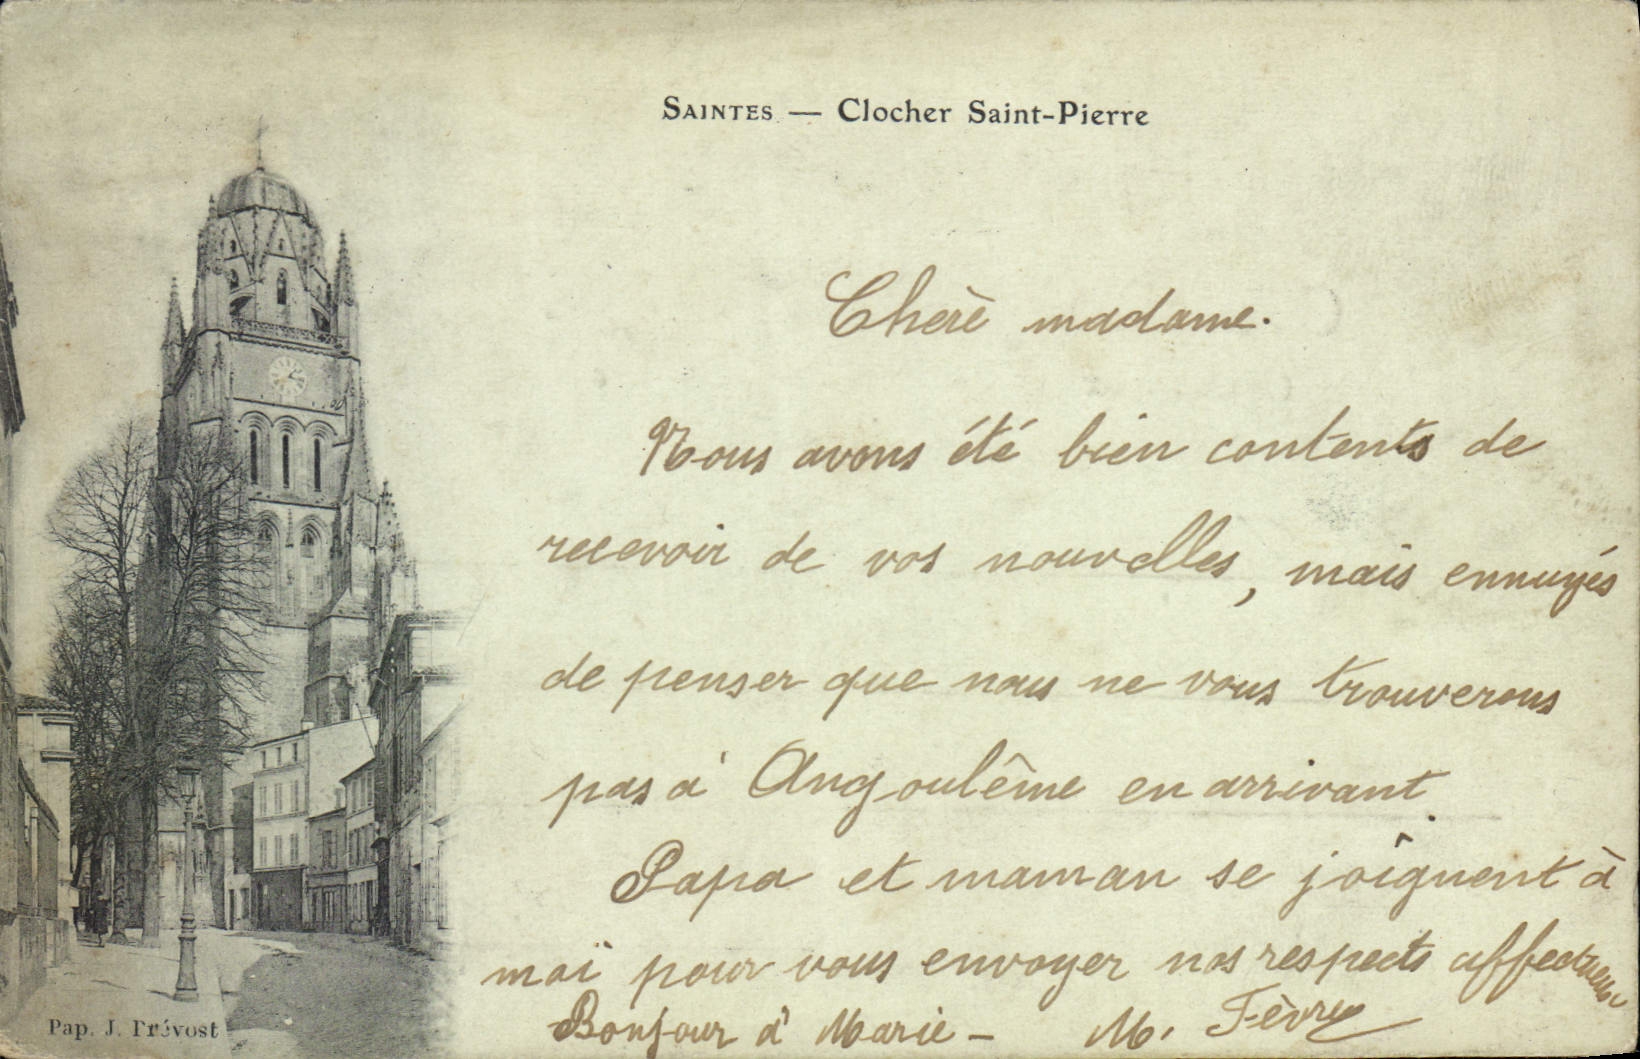 SAINTES — Clocher Saint-Pierre
Chère madame.
Nous avons été bien contents de
recevoir de vos nouvelles, mais ennuyés
de penser que nous ne vous trouverons
pas à Angoulême en arrivant.
Papa et maman se joignent à
moi pour vous envoyer nos respects affectueux
Bonjour à Marie - M. Fèvre
Pap. J. Prévost